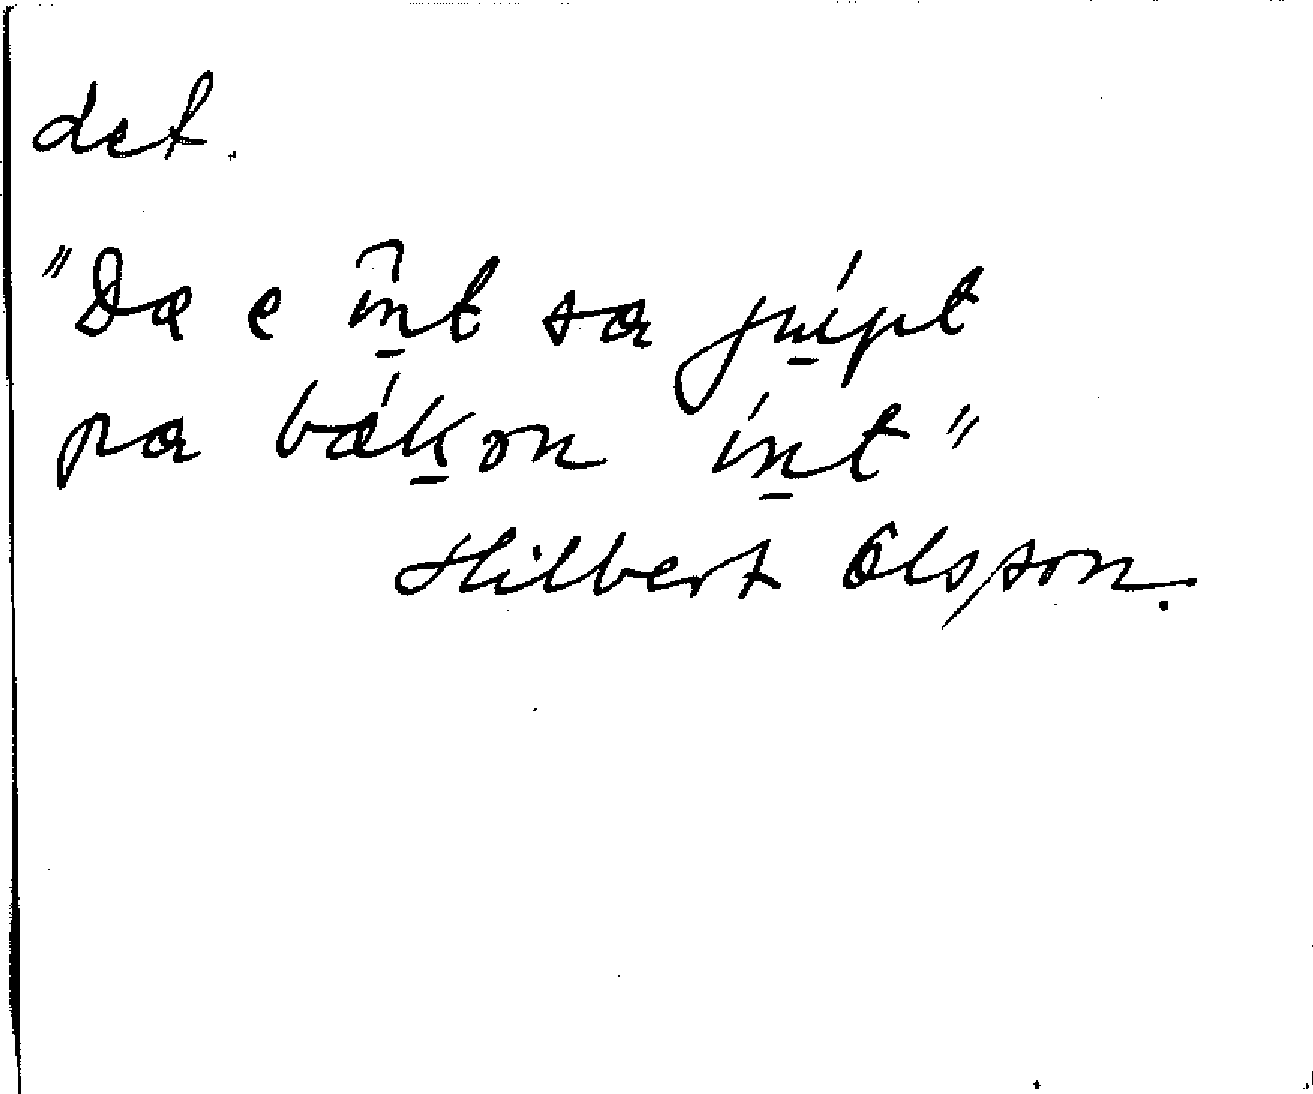 det.
"Dæ e înt sa jnípt
pa bákon ínt"
Hilbert Olsson.